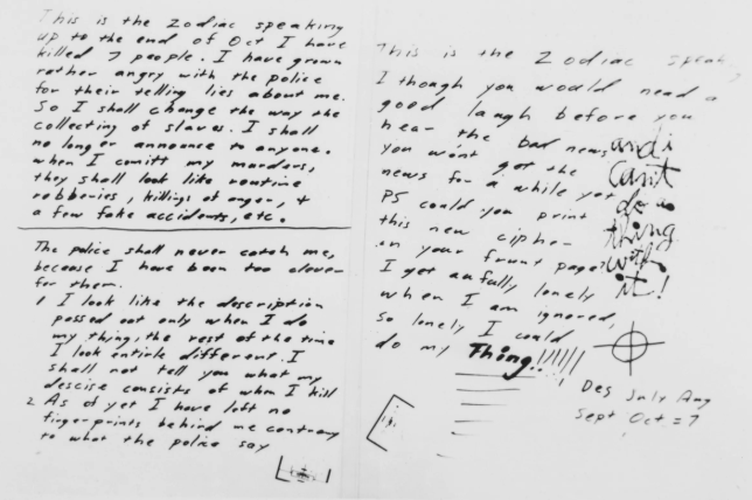 This is the Zodiac speaking
up to the end of Oct I have
killed 7 people. I have grown
rather angry with the police
for their telling lies about me.
So I shall change the way the
collecting of slaves. I shall
no longer announce to anyone.
when I comitt my murders,
they shall look like routine
robberies, killings of anger, +
a few fake accidents, etc.
The police shall never catch me,
because I have been too clever
for them.
1 I look like the description
passed out only when I do
my thing, the rest of the time
I look entirle different. I
shall not tell you what my
descise consists of when I kill
2 As of yet I have left no
fingerprints behind me contrary
to what the police say
This is the Zodiac speaking
I though you would need a
good laugh before you
hear the bad news
you won't get the
news for a while yet
PS could you print
this new cipher
in your frunt page?
I get awfully lonely
when I am ignored,
So lonely I could
do my Thing!!!!!!
and i
can't
do a
thing
with
it!
Des July Aug
Sept Oct = 7